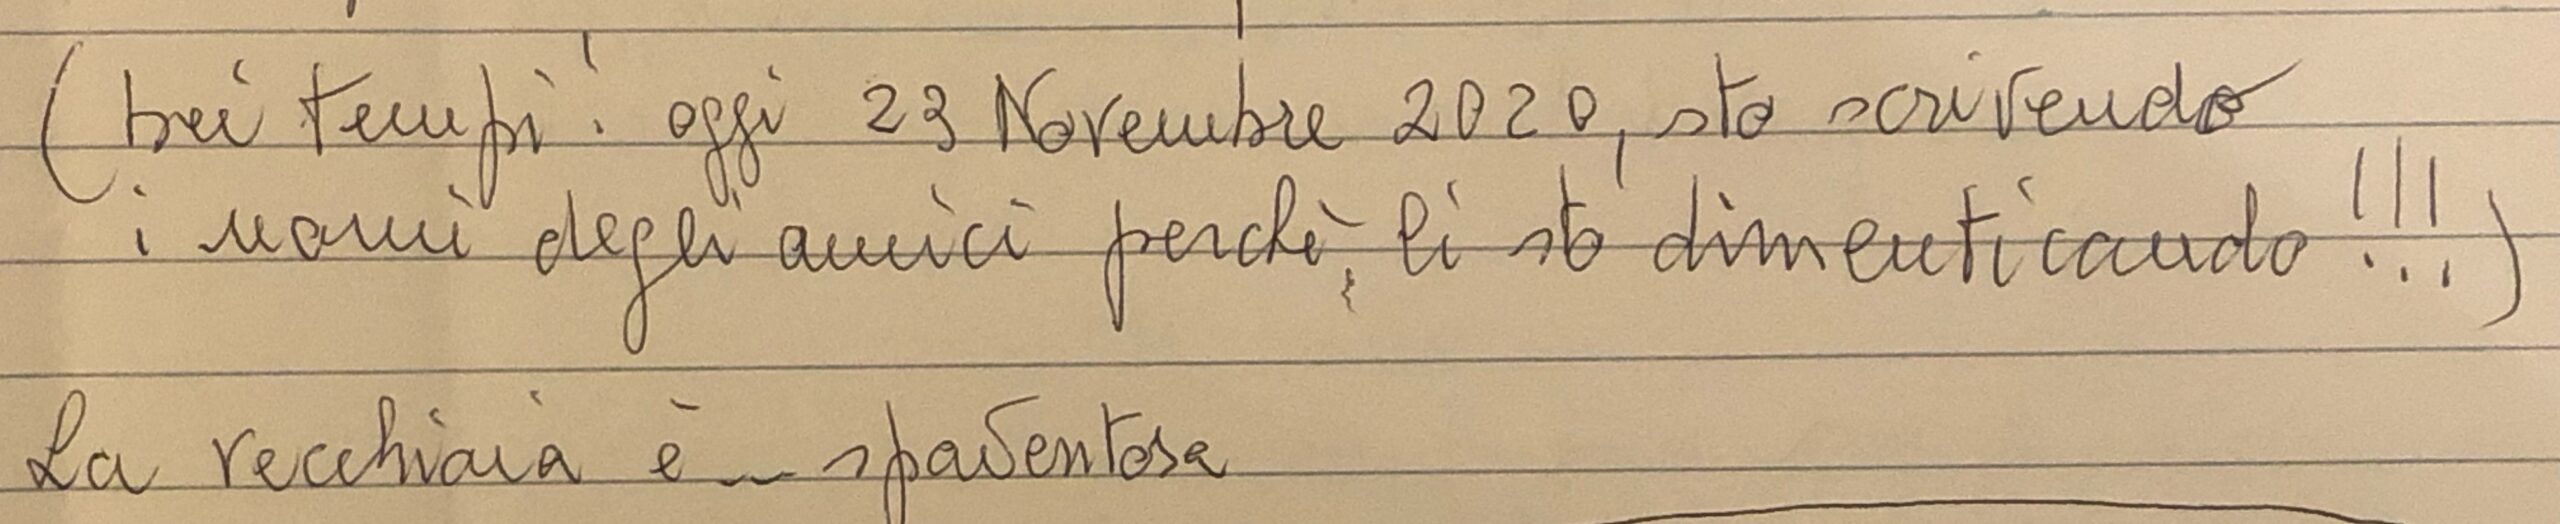 (bei tempi! oggi 23 Novembre 2020, sto scrivendo
i nomi degli amici perchè, li stò dimenticando!!!)
La vecchiaia è spaventosa